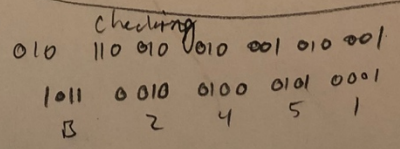 checking
010 110 010 010 001 010 001
1011 0010 0100 0101 0001
B 2 4 5 1